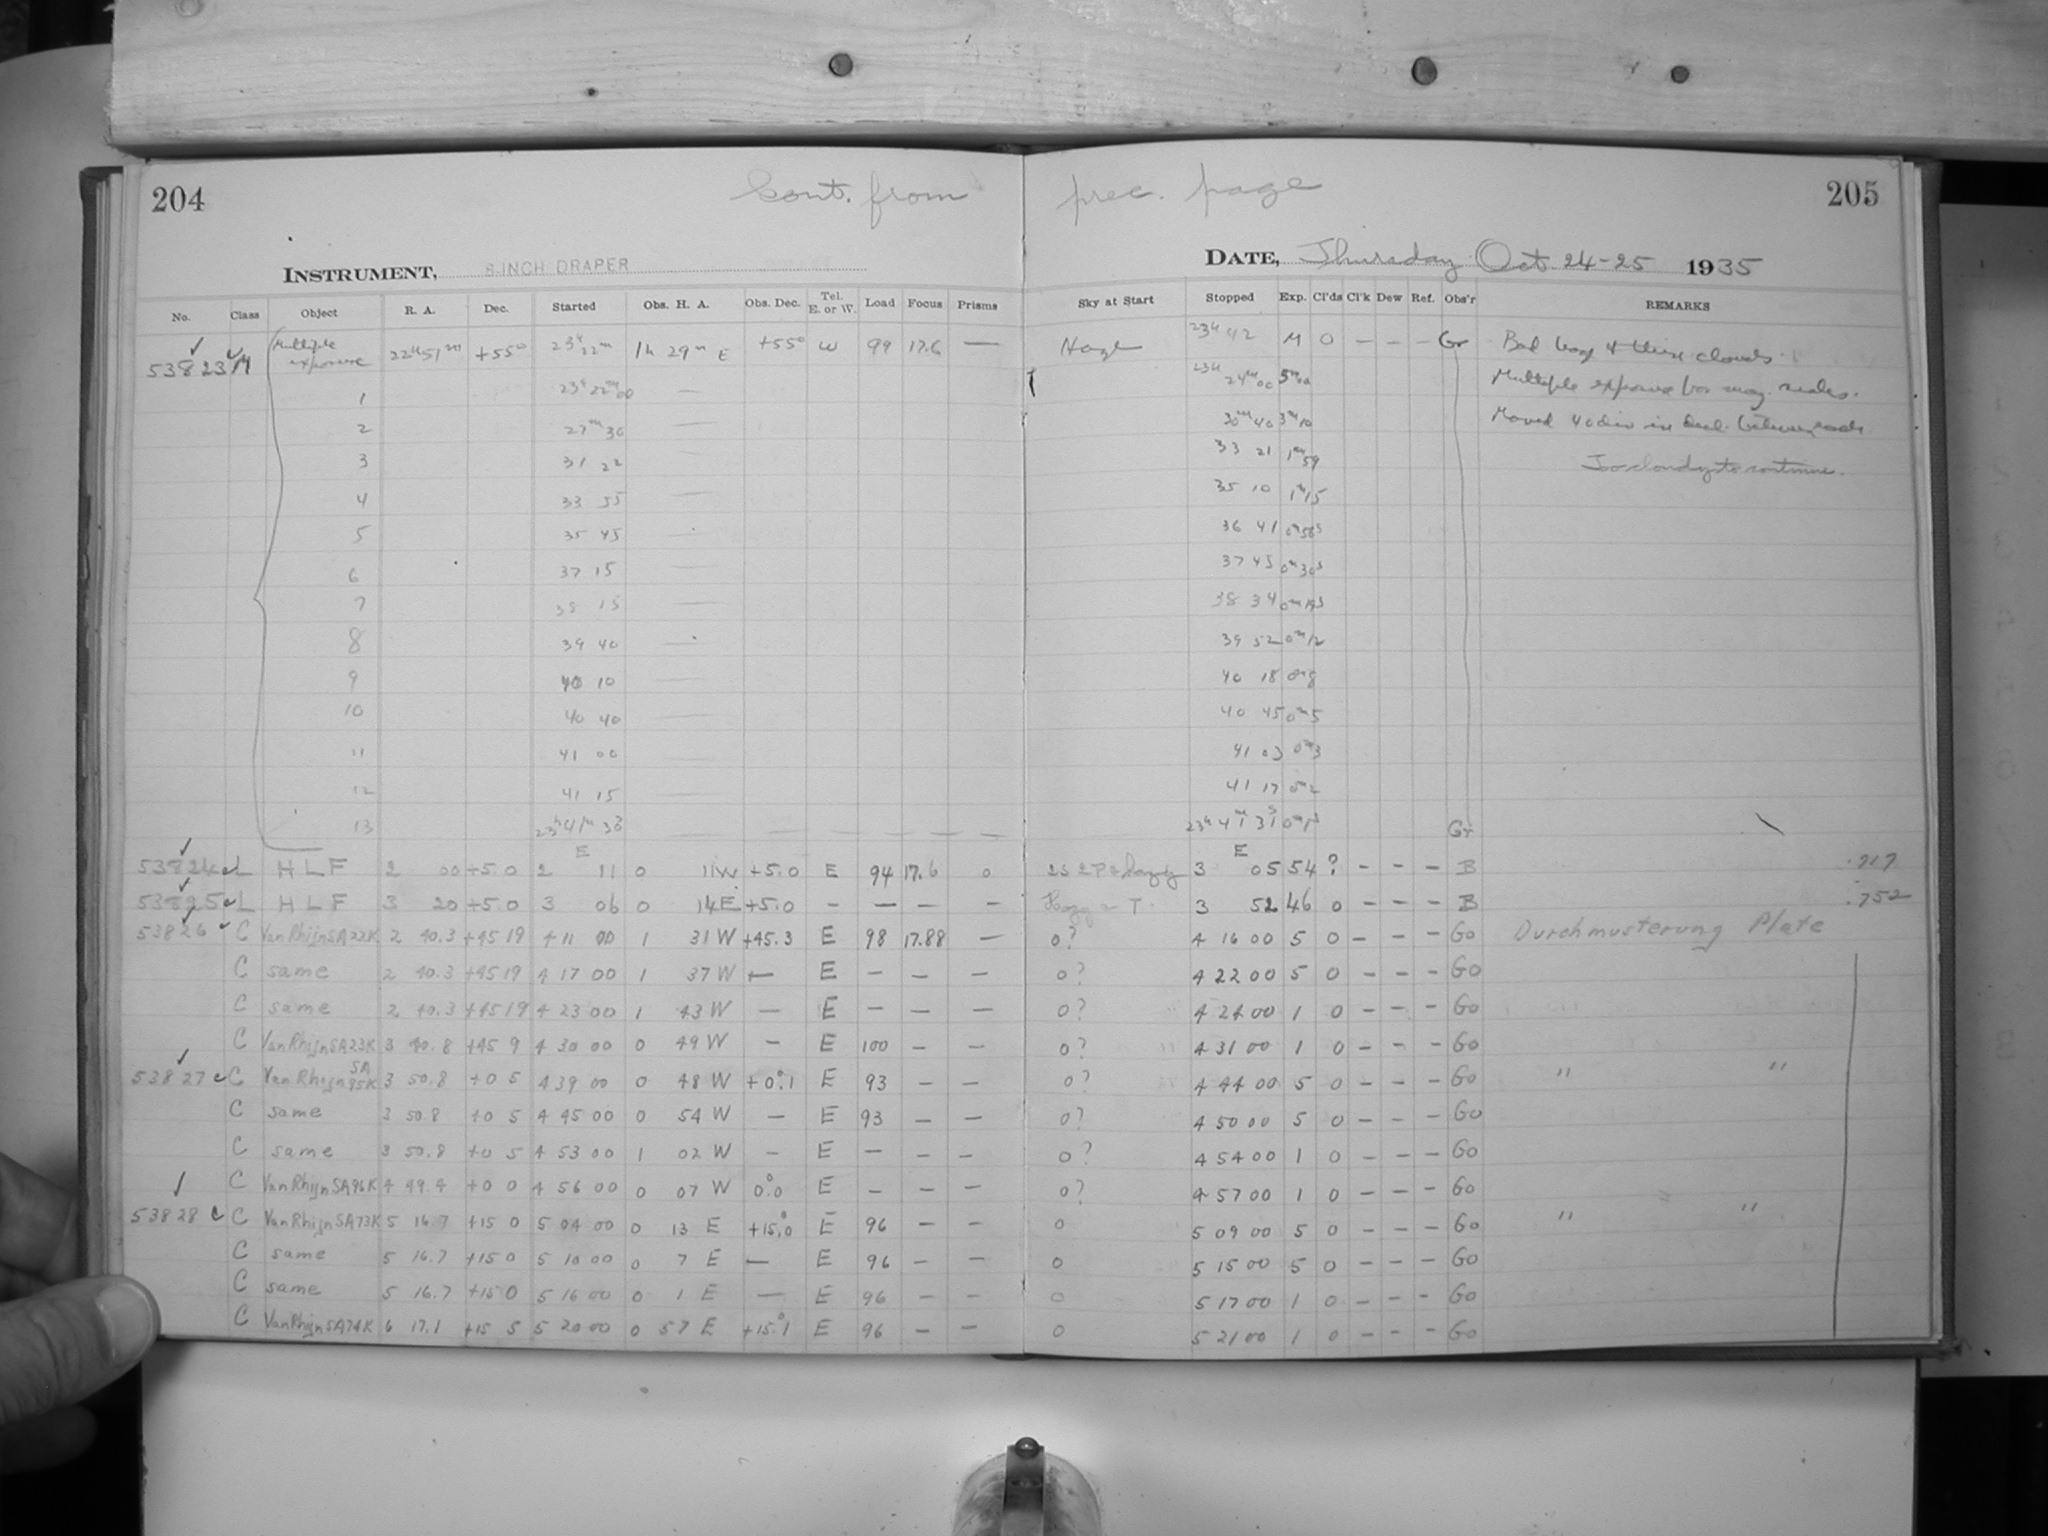 204
Cont. from prec. page
205
INSTRUMENT, 8-INCH DRAPER
DATE, Thursday Oct 24-25 1935
No. Class Object R. A. Dec. Started Obs. H. A. Obs. Dec. Tel. E. or W. Load Focus Prisms Sky at Start Stopped Exp. Cl'ds Cl'k Dew Ref. Obs'r REMARKS
53823 M Multiple exposure 22h 51m +55° 23h 22m 1h 29m E +55° W 99 17.6 — Haze 23h 42 M 0 – – – Gr Bad haze & thin clouds.
1 23h 22m 00 — 23h 24m 00 Multiple exposure for mag. scales.
2 27m 30 — 30m 40 3m 10 Moved 40 div in decl. between each
3 31 22 — 33 21 1m 59 Too cloudy to continue.
4 33 55 — 35 10 1m 15
5 35 45 — 36 41 0m 56s
6 37 15 — 37 45 0m 30s
7 38 15 — 38 34 0m 19s
8 39 40 — 39 52 0m 12
9 40 10 — 40 18 0m 8
10 40 40 — 40 45 0m 5
11 41 00 — 41 03 0m 3
12 41 15 — 41 17 0m 2
13 23h 41m 30 — — — — — — 23h 41m 31s 0m 1s Gr
E E
53824 L H L F 2 00 +5.0 2 11 0 11 W +5.0 E 94 17.6 0 3 05 54 ? – – – B .717
53825 L H L F 3 20 +5.0 3 06 0 14 E +5.0 – — — — 3 52 46 0 – – – B .752
53826 C Van Rhijn SA 22K 2 40.3 +45 19 4 11 00 1 31 W +45.3 E 98 17.88 — 0? 4 16 00 5 0 – – – Go Durchmusterung Plate
C same 2 40.3 +45 19 4 17 00 1 37 W — E – – – 0? 4 22 00 5 0 – – – Go
C same 2 40.3 +45 19 4 23 00 1 43 W — E – – – 0? 4 24 00 1 0 – – – Go
C Van Rhijn SA 23K 3 40.8 +45 9 4 30 00 0 49 W – E 100 – – 0? 4 31 00 1 0 – – – Go
53827 C Van Rhijn SA 95K 3 50.8 +0 5 4 39 00 0 48 W +0°.1 E 93 – – 0? 4 44 00 5 0 – – – Go " "
C same 3 50.8 +0 5 4 45 00 0 54 W — E 93 – – 0? 4 50 00 5 0 – – – Go
C same 3 50.8 +0 5 4 53 00 1 02 W – E – – – 0? 4 54 00 1 0 – – – Go
C Van Rhijn SA 96K 4 49.4 +0 0 4 56 00 0 07 W 0°.0 E – – – 0? 4 57 00 1 0 – – – Go
53828 C Van Rhijn SA 73K 5 16.7 +15 0 5 04 00 0 13 E +15°.0 E 96 – – 0 5 09 00 5 0 – – – Go " "
C same 5 16.7 +15 0 5 10 00 0 7 E — E 96 – – 0 5 15 00 5 0 – – – Go
C same 5 16.7 +15 0 5 16 00 0 1 E — E 96 – – 0 5 17 00 1 0 – – – Go
C Van Rhijn SA 74K 6 17.1 +15 5 5 20 00 0 57 E +15°.1 E 96 – – 0 5 21 00 1 0 – – – Go